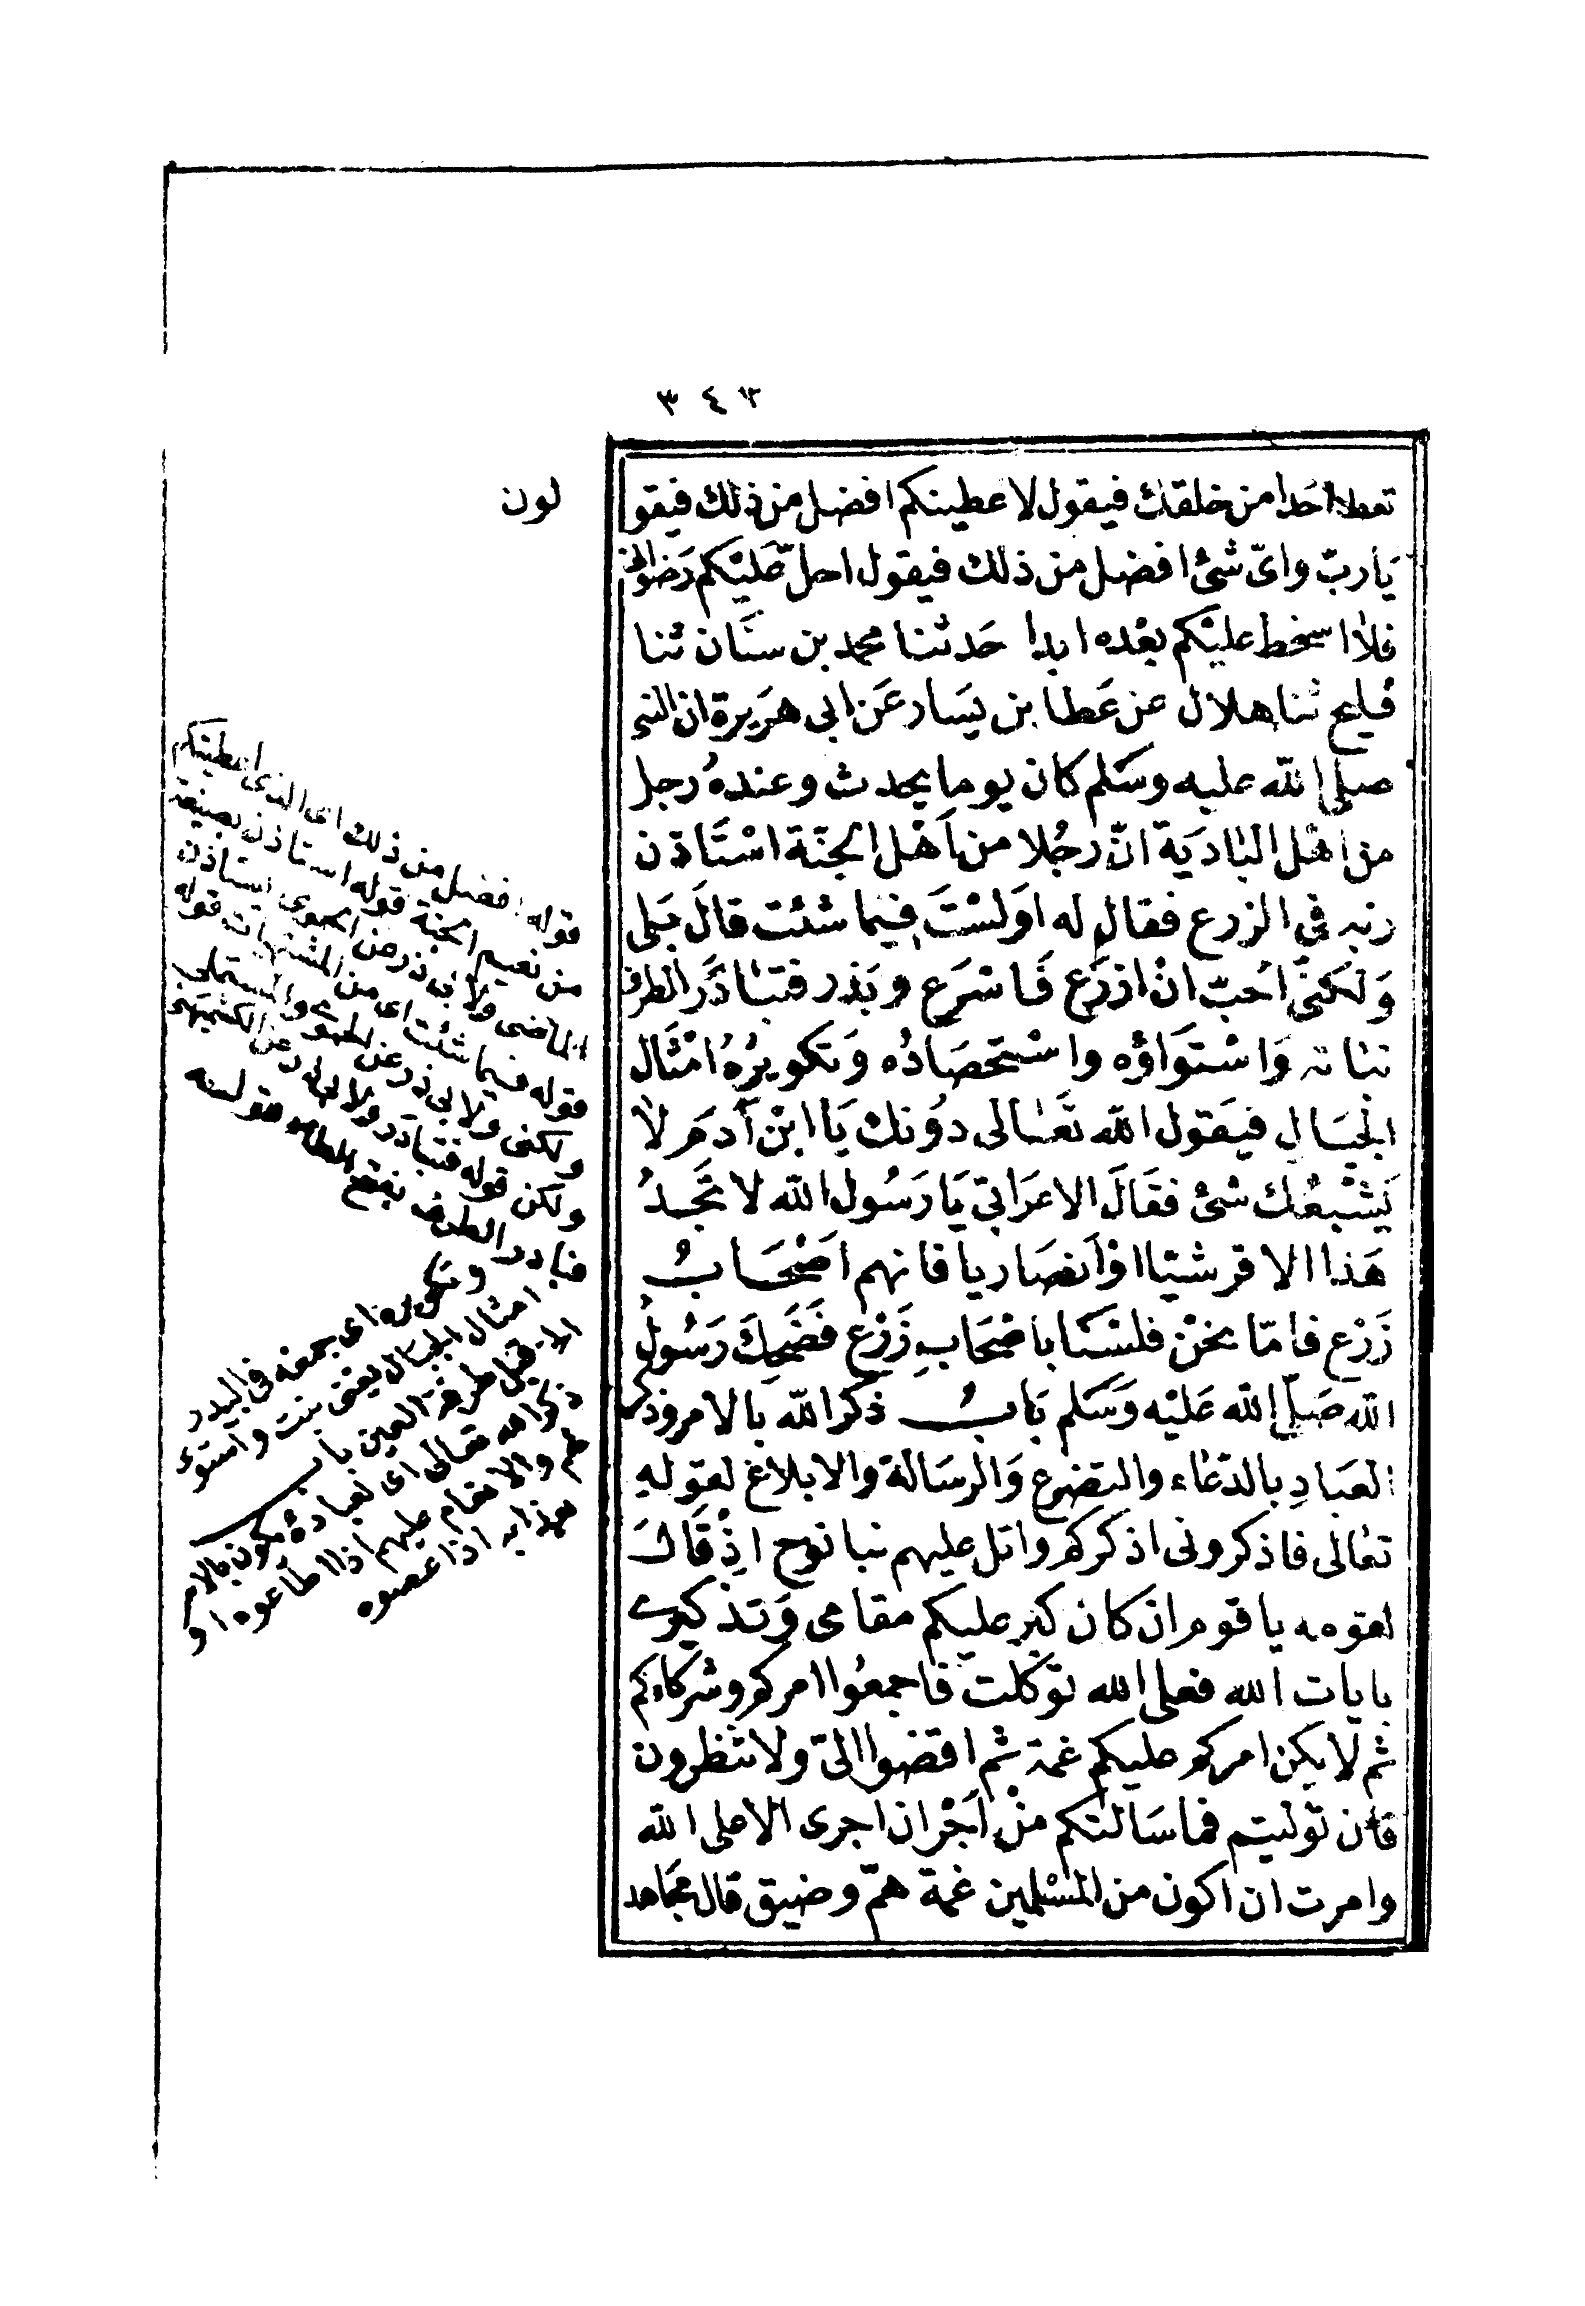 ٣٤٣
تعط احدا من خلقك فيقول لاعطينكم افضل من ذلك فيقو
لون
يَارب واىّ شئ افضل من ذلك فيقول احلّ عليْكم رَضوانى
فلا اسخط عليْكم بعْده ابدا حَدثنا محمد بن سنَان ثنا
فليح ثنا هلال عن عَطا بن يَسار عَن ابى هرَيرة ان النبى
صلى الله عليه وسَلم كان يوما يحدث وعندهُ رجل
من اهْل البَاديَة انّ رجُلا من اَهْل الجنّة اسْتَاذن
ربه في الزرع فقال له اوَلسْتَ فيما شئت قالَ بَلى
وَلكنّى احُبّ انْ ازرَع فَاسْرَع وبَذر فتبَادَر الطرف
نباته وَاسْتوَاؤه واسْتحصَادُه وَتكويرُهُ امْثَال
الجبَال فيَقول الله تعَالى دوُنك يَا ابْن آدمَ لا
يَشْبعُك شئ فقَالَ الاعرَابىّ يَا رَسُول الله لا تَجدُ
هَذا الا قرشيّا اوْ اَنصَاريا فانهم اصْحَابُ
زَرْع فامّا نحنْ فلسْنَا باصْحَابِ زَرْع فَضَحِكَ رَسُول
الله صَلى الله عَليْه وَسَلم بَابُ ذكر الله بالامر وذكر
العبَادِ بالدّعاء والتضرع وَالرسَالة والابلاغ لقوله
تعَالى فاذكرونى اذكركم واتل عليهم نبا نوح اذْ قَالَ
لقومه يا قوم ان كان كبر عليكم مقامى وَتذكيرى
بايات الله فعلى الله توَكلت فاجمعُوا امركم وشركاءكم
ثم لا يكن امركم عليكم غمة ثم اقضوا الىّ ولا تنْظرون
فان توَليتم فما سَالتكم منْ اَجْر ان اجرى الا على الله
وامرت ان اكون من المسْلمين غمة همّ وضيق قال مجَاهد
قوله افضل من ذلك اى الذى اعطيتكم
من نعيم الجنة قوله استاذن بصيغة
الماضى ولابى ذر عن الحموى يستاذن
قوله فيما شئت اى من المشتهيات قوله
ولكنى ولابى ذر عن الحموى والمستملى
ولكن قوله فتبادر ولابى ذر عن الكشميهنى
فبادر الطرف بفتح الطاء قوله
وتكويره اى جمعه فى البيدر
امثال الجبال يعنى نبت واستوى
الخ قبل طرفة العين باب
ذكر الله تعالى اى لعباده يكون بالامر
لهم والانعام عليهم اذا اطاعوه او
بعذابه اذا عصوه